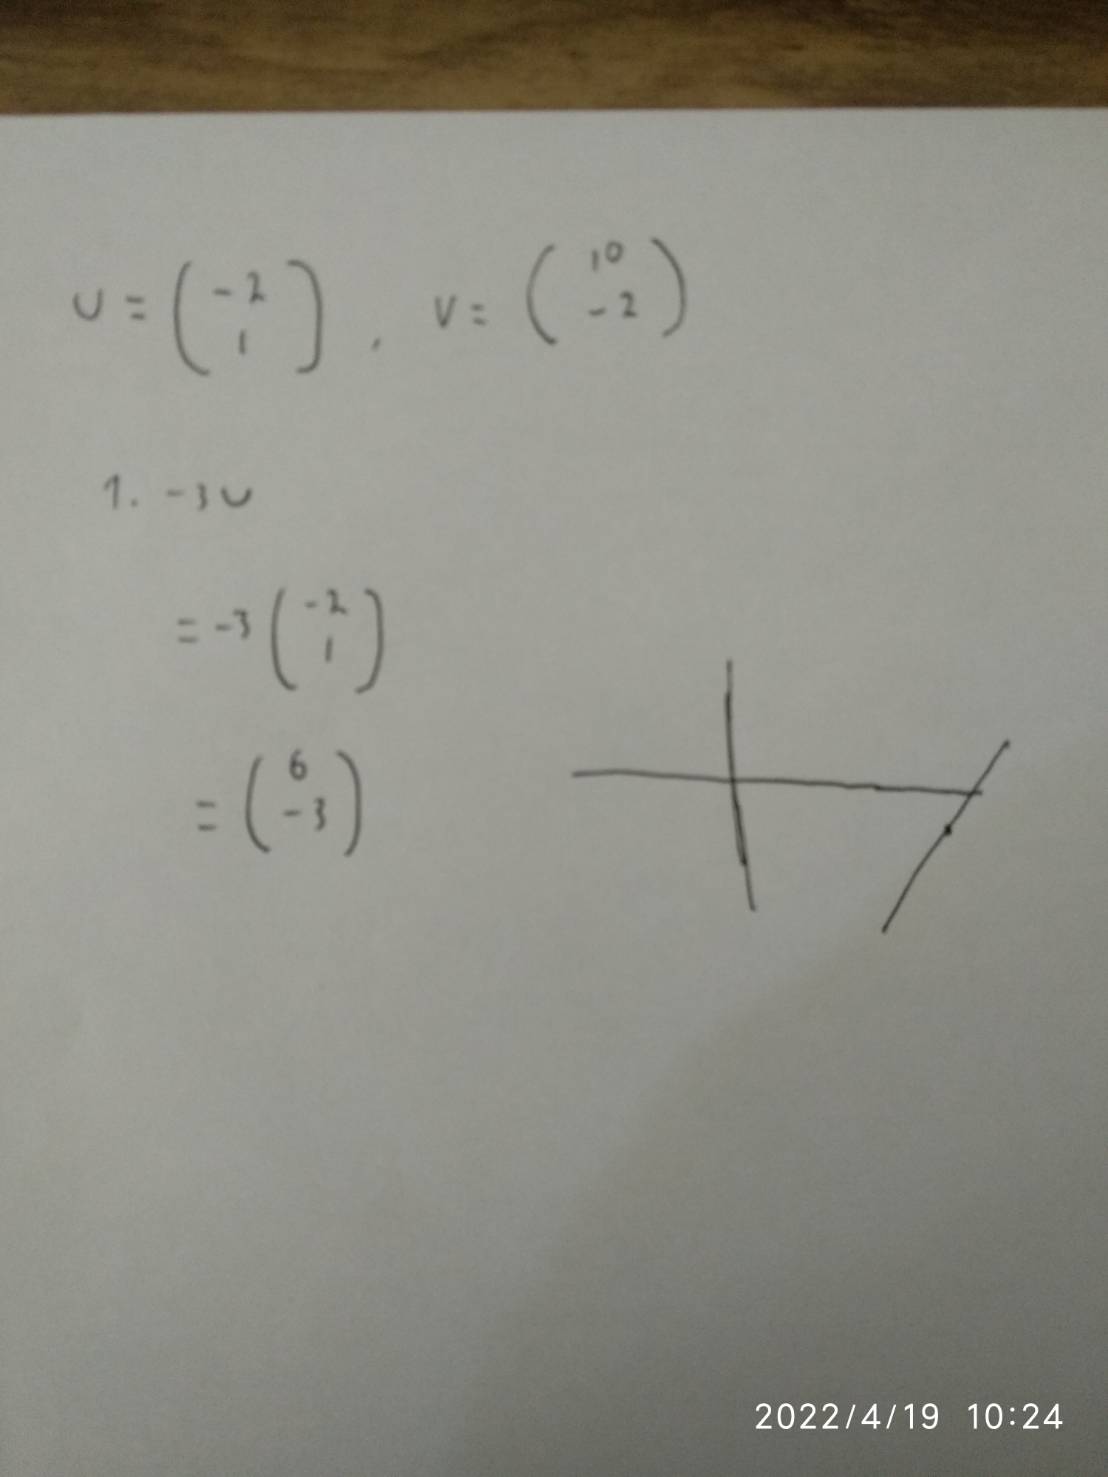 U = ( -2 1 ) , V = ( 10 -2 )
1. -3U
= -3 ( -2 1 )
= ( 6 -3 )
2022/4/19 10:24